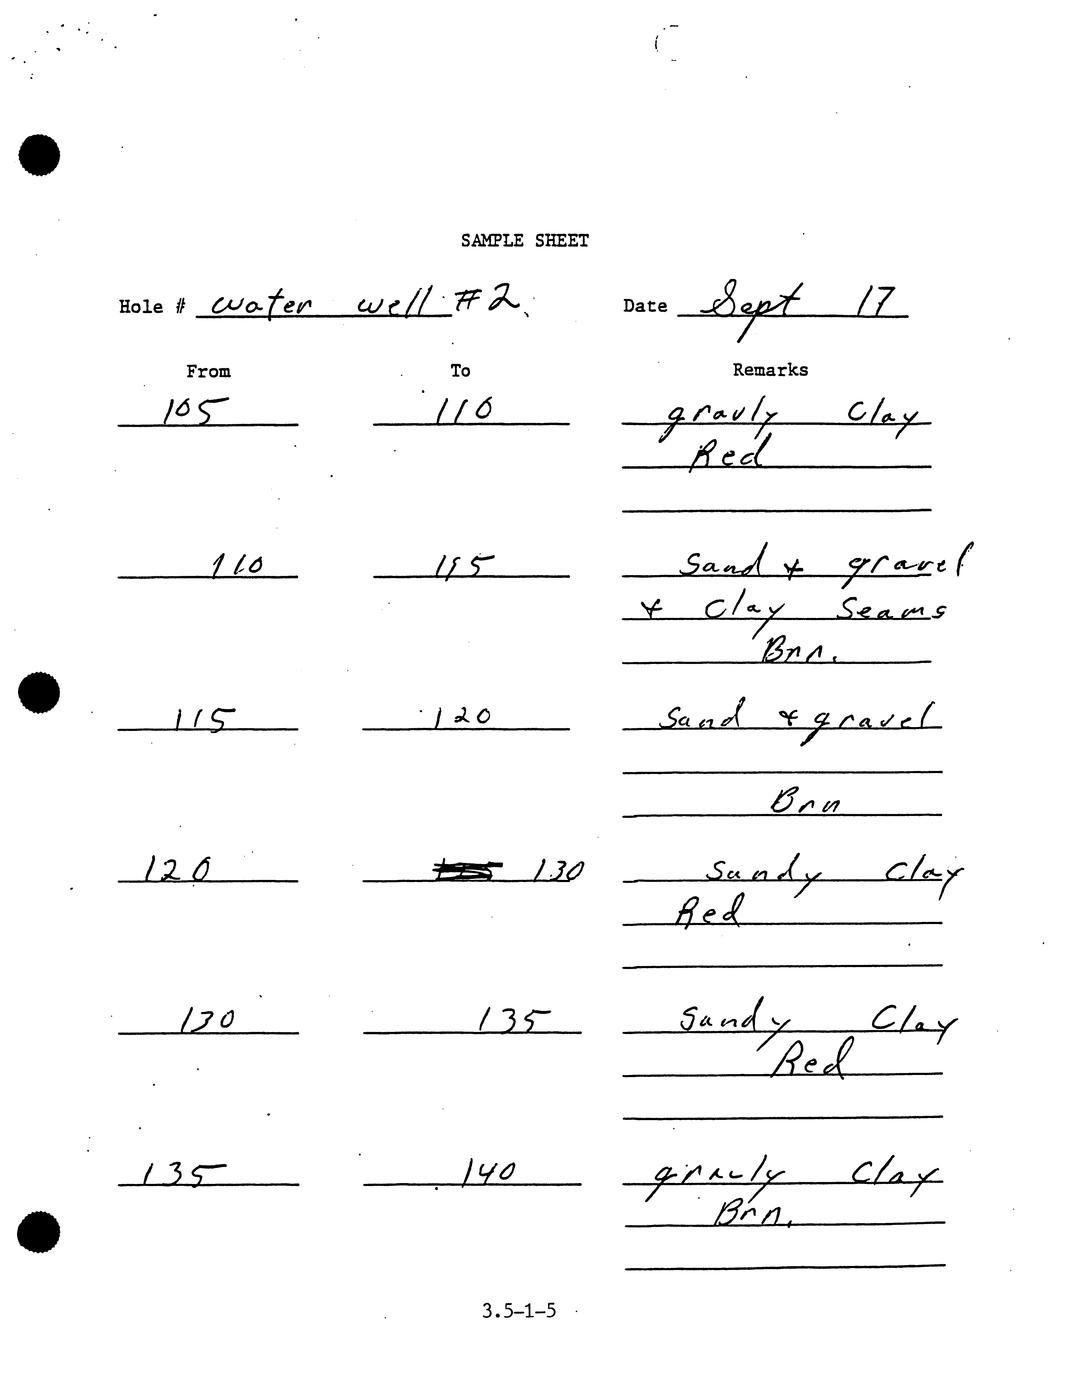 SAMPLE SHEET
Hole # water well #2. Date Sept 17
From To Remarks
105 110 gravly Clay
Red
110 115 Sand + gravel
+ Clay Seams
Brn.
115 120 Sand + gravel
Brn
120 130 Sandy Clay
Red
130 135 Sandy Clay
Red
135 140 gravly Clay
Brn.
3.5-1-5